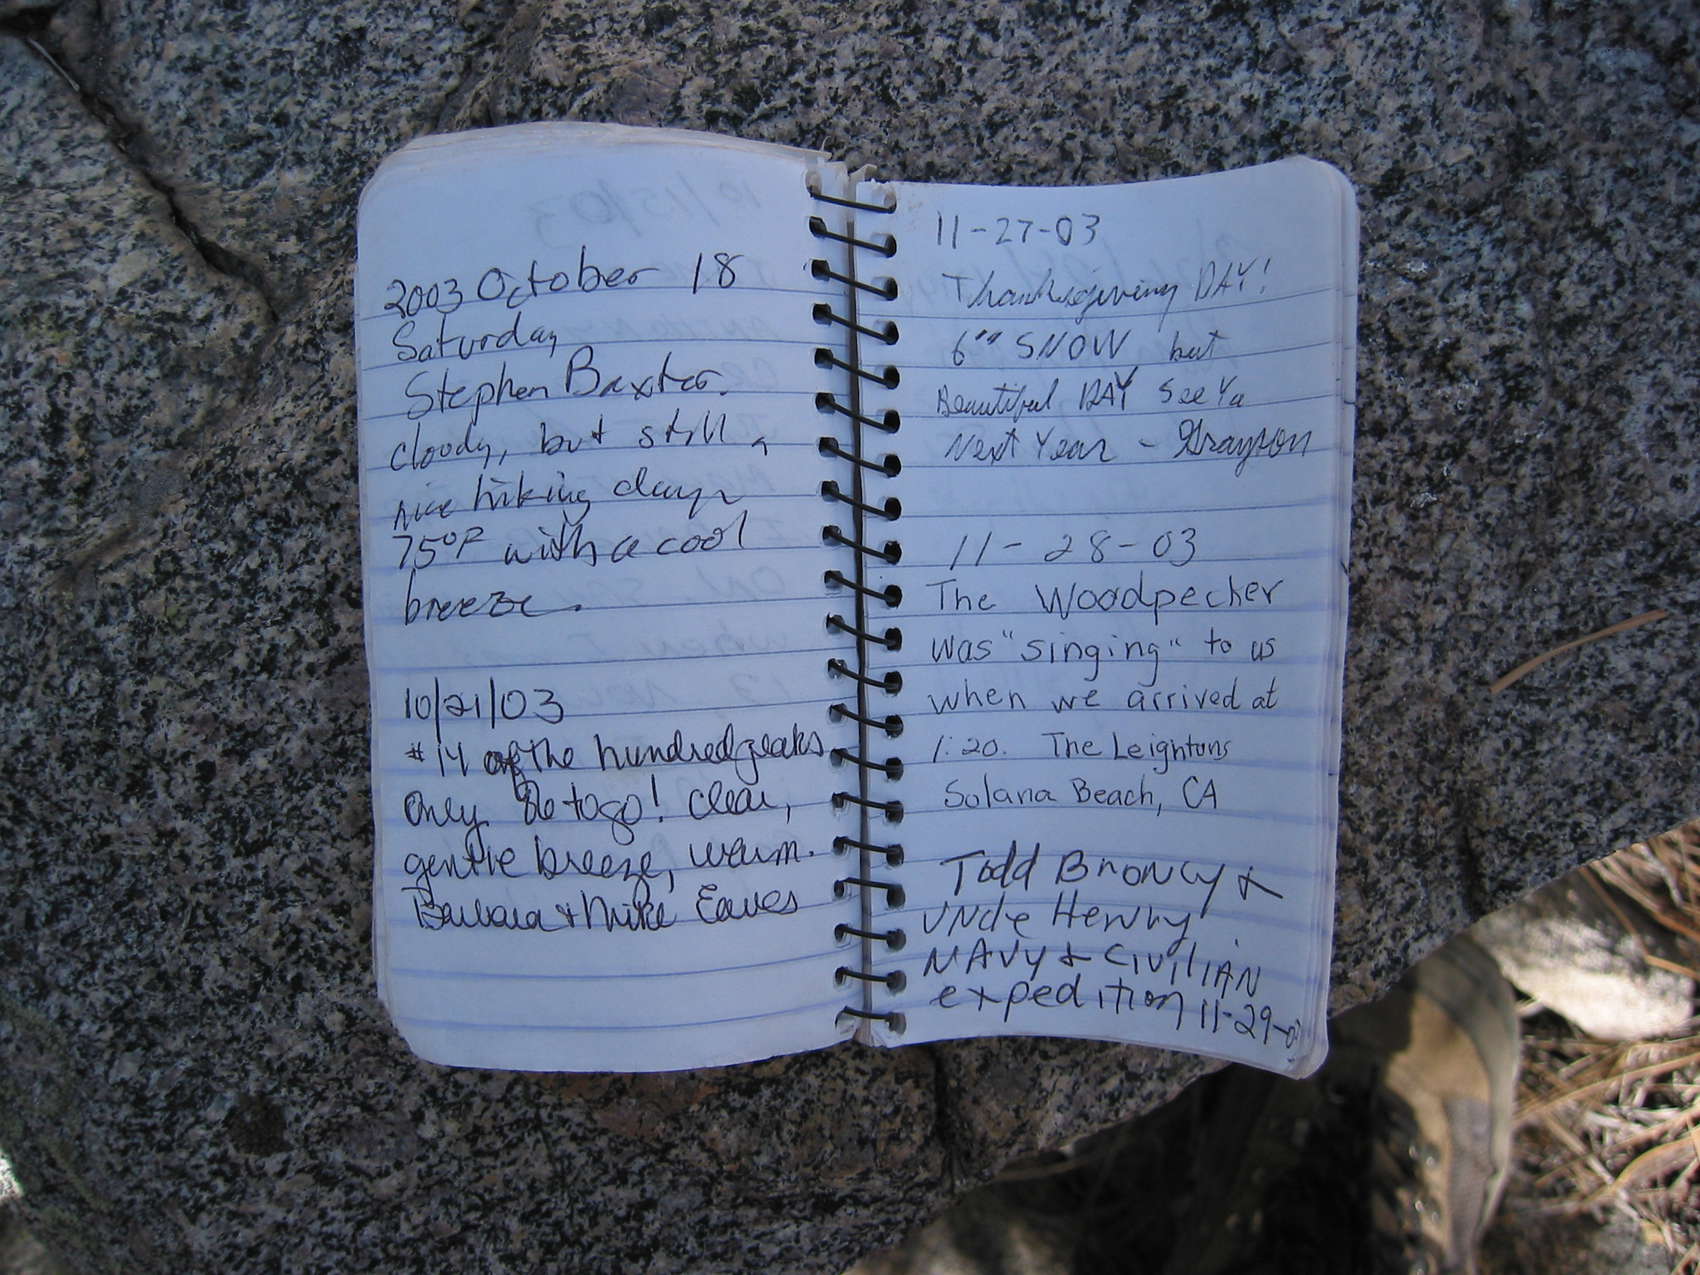 2003 October 18
Saturday
Stephen Baxter.
cloudy, but still a
nice hiking day
75°F with a cool
breeze.
10/21/03
#14 of the hundred peaks
only 86 to go! Clear,
gentle breeze, warm.
Barbara & Mike Eaves
11-27-03
Thanksgiving DAY!
6" SNOW but
Beautiful DAY See Ya
Next Year - Grayson
11-28-03
The Woodpecker
was "singing" to us
when we arrived at
1:20. The Leightons
Solana Beach, CA
Todd Broncy &
UNcle Henry
NAvy & CiviliAN
expedition 11-29-03